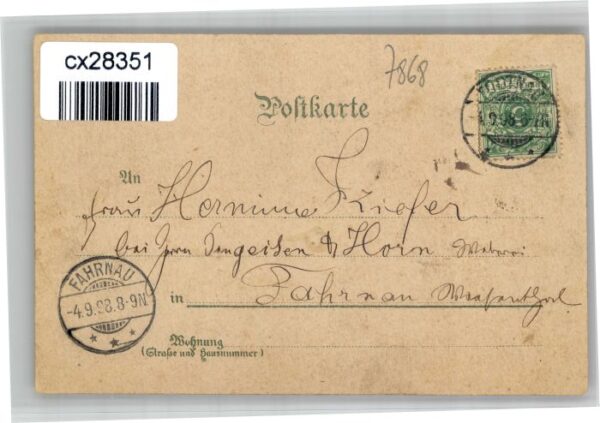 cx28351
7868
Postkarte
4.9.98.
An
Frau Hermine Kiefer
bei Herrn & Horn Weberei
FAHRNAU
-4.9.98.8-9N
in Fahrnau Wiesenthal
Wohnung
(Straße und Hausnummer)